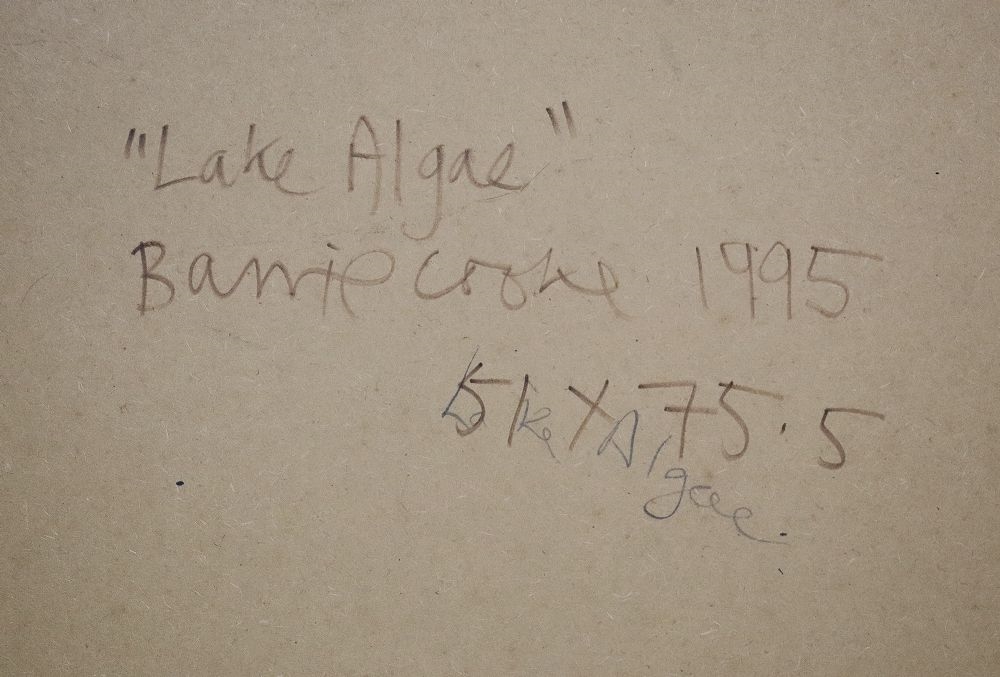 "Lake Algae"
Barrie Cooke 1995
51 X 75.5
Lake Algae.